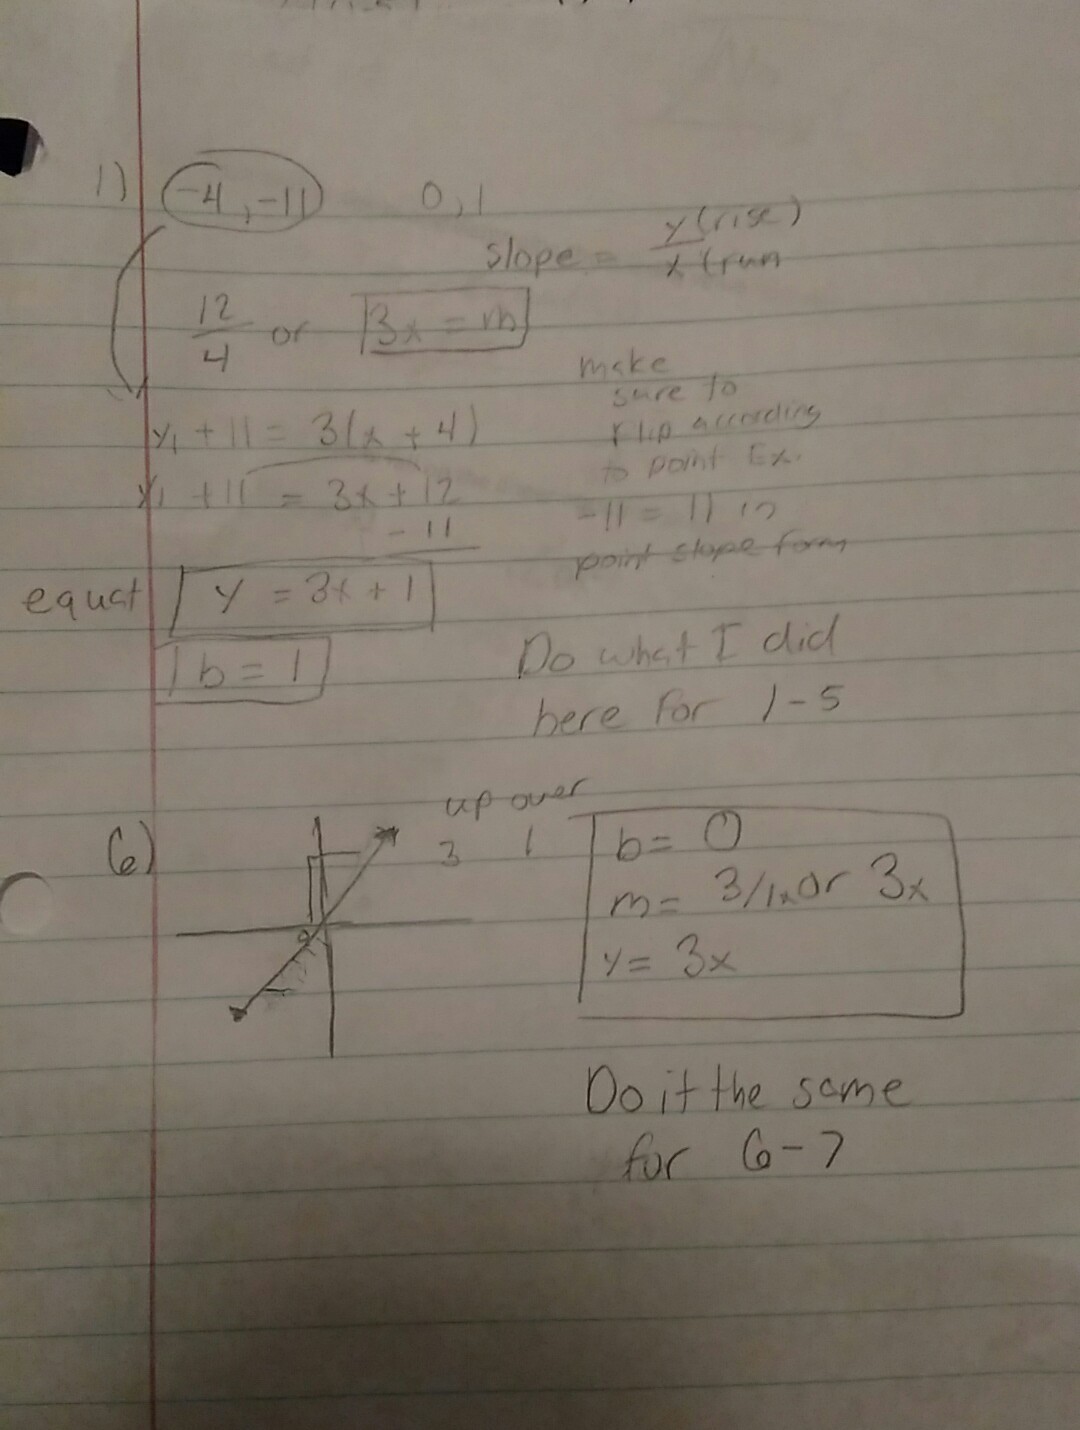 1) -4, -11 0, 1
slope = y (rise)
x (run
12
4
or 3x = m
make
sure to
flip according
to point Ex.
-11 = 11 in
point slope form
y₁ + 11 = 3(x + 4)
y₁ + 11 = 3x + 12
- 11
equat y = 3x + 1
b = 1
Do what I did
here for 1-5
6)
up over
3 1
b = 0
m = 3/1x or 3x
y = 3x
Do it the same
for 6-7